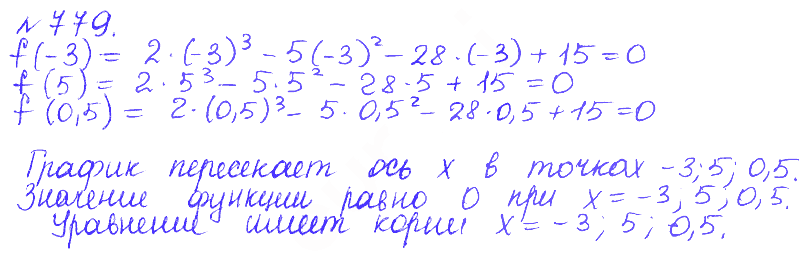 № 779.
f(-3) = 2·(-3)³ - 5(-3)² - 28·(-3) + 15 = 0
f(5) = 2·5³ - 5·5² - 28·5 + 15 = 0
f(0,5) = 2·(0,5)³ - 5·0,5² - 28·0,5 + 15 = 0
График пересекает ось x в точках -3; 5; 0,5.
Значение функции равно 0 при x = -3; 5; 0,5.
Уравнение имеет корни x = -3; 5; 0,5.